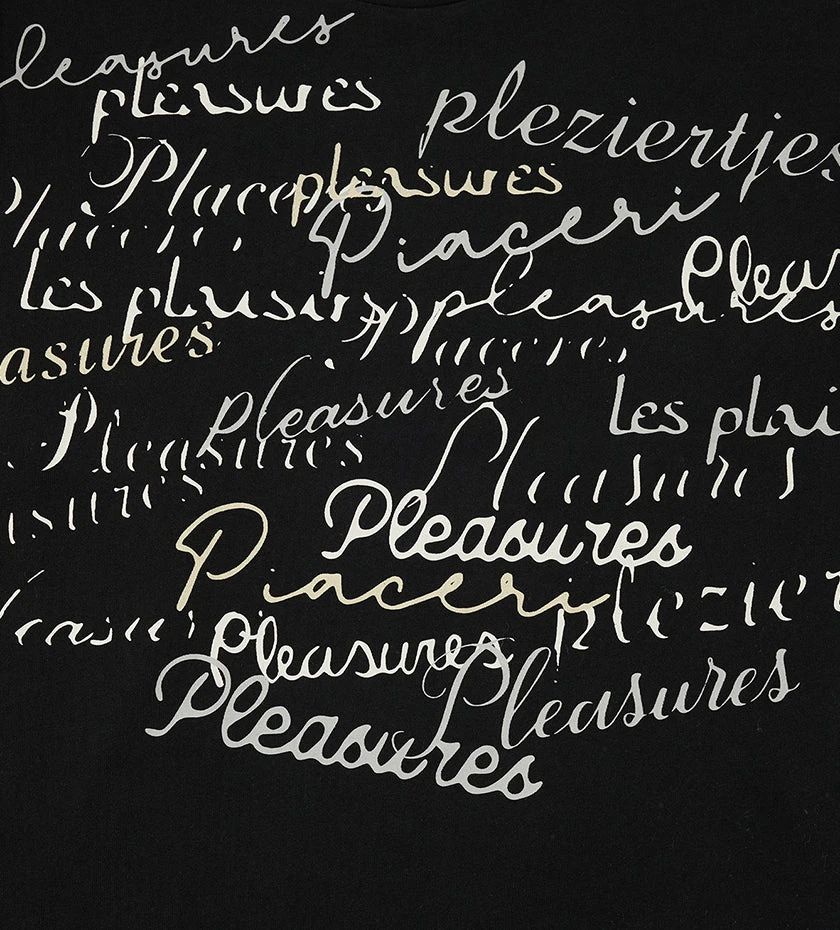 pleasures
pleasures
pleziertjes
Placeres
pleasures
Piaceri
les plaisirs
pleasures
Pleasures
Placeres
les plai
Pleasures
Pleasures
Pleasures
Pleasures
Piaceri
plezier
pleasures
Pleasures
Pleasures